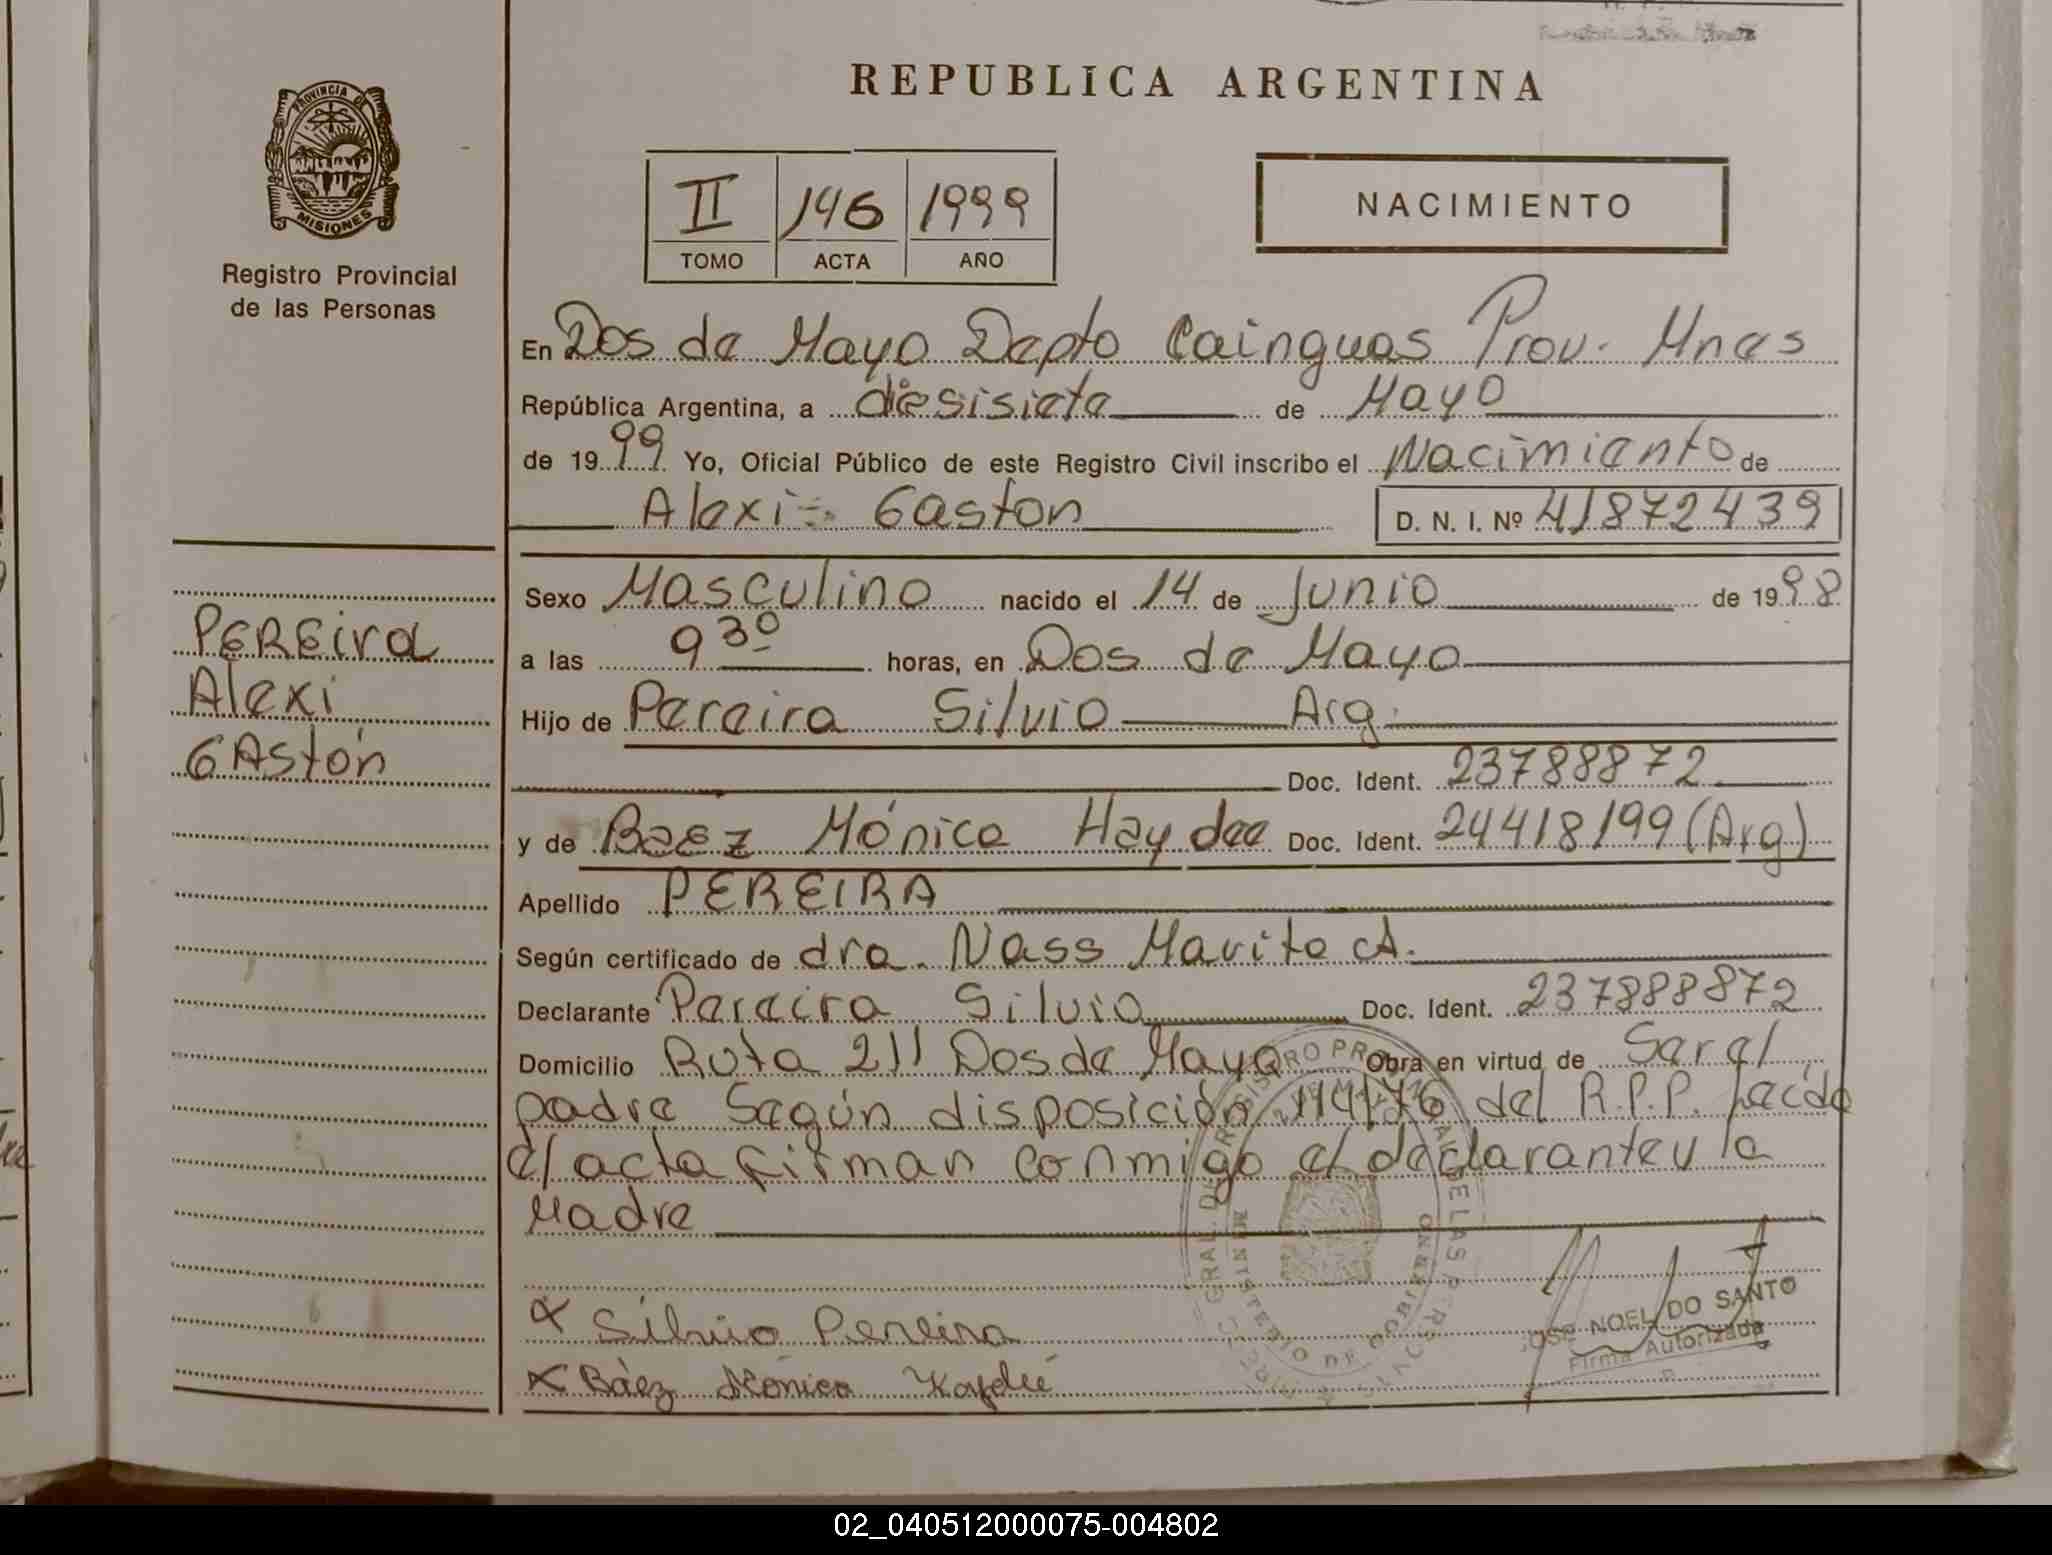 REPUBLICA ARGENTINA
PROVINCIA DE
MISIONES
Registro Provincial
de las Personas
II 146 1999
TOMO ACTA AÑO
NACIMIENTO
En Dos de Mayo Depto Cainguas Prov. Mnes
República Argentina, a diesisiete de Mayo
de 1999 Yo, Oficial Público de este Registro Civil inscribo el Nacimiento de
Alexi Gaston D. N. I. Nº 41872439
Sexo Masculino nacido el 14 de Junio de 1998
a las 9 30 horas, en Dos de Mayo
Hijo de Pereira Silvio Arg.
Doc. Ident. 23788872
y de Baez Mónica Haydee Doc. Ident. 24418199 (Arg)
Apellido PEREIRA
Según certificado de dra. Nass Marite A.
Declarante Pereira Silvio Doc. Ident. 237888872
Domicilio Ruta 211 Dos de Mayo Obra en virtud de Ser el
padre Según disposición 114/76 del R.P.P. Leída
el acta firman conmigo el declarante y la
Madre
PEREirA
Alexi
GAstón
x Silvio Pereira
x Báez Mónica Haydeé
JOSE NOEL DO SANTO
Firma Autorizada
02_040512000075-004802